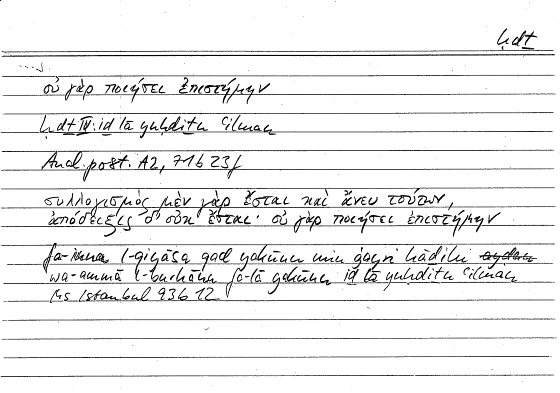 ḥdṯ
οὐ γὰρ ποιήσει ἐπιστήμην
ḥdṯ IV: id lā yuḥdiṯu ʿilman
Anal. post. A2, 71b 23f
συλλογισμὸς μὲν γὰρ ἔσται καὶ ἄνευ τούτων,
ἀπόδειξις δ' οὐκ ἔσται· οὐ γὰρ ποιήσει ἐπιστήμην
fa-inna l-qiyāsa qad yakūnu min ġayri hāḏihi
wa-ammā l-burhānu fa-lā yakūnu iḏ lā yuḥdiṯu ʿilman
Ms Istanbul 936 12